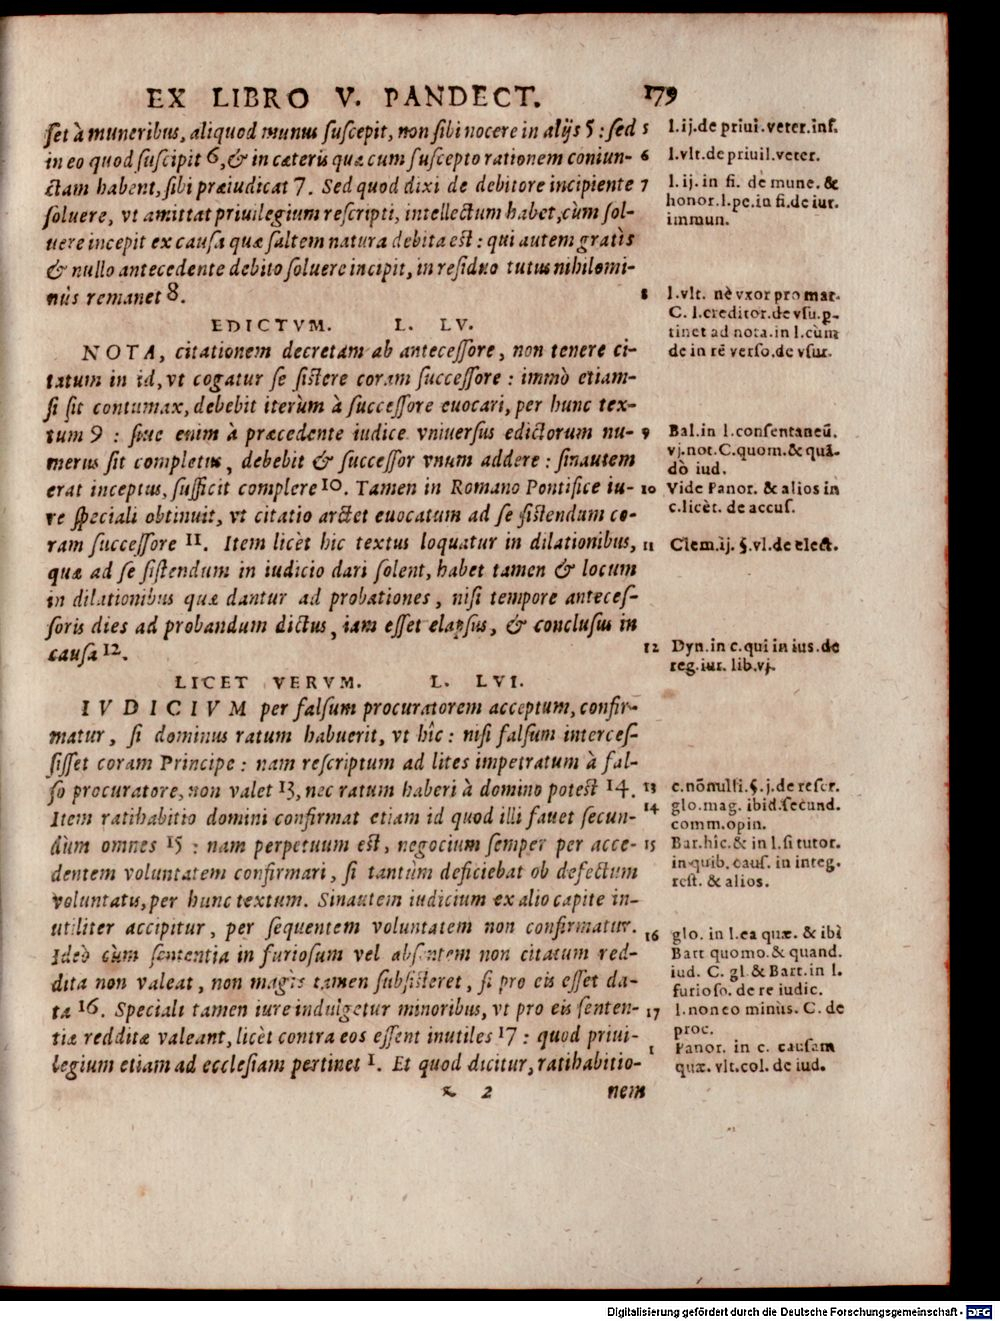 EX LIBRO V. PANDECT. 179
ſet à muneribus, aliquod munus ſuſcepit, non ſibi nocere in alijs 5 : ſed
in eo quod ſuſcipit 6, & in cæteris quæ cum ſuſcepto rationem coniun-
ctam habent, ſibi præiudicat 7. Sed quod dixi de debitore incipiente
ſoluere, vt amittat priuilegium reſcripti, intellectum habet, cùm ſol-
uere incepit ex cauſa quæ ſaltem natura debita eſt : qui autem gratìs
& nullo antecedente debito ſoluere incipit, in reſiduo tutus nihilomi-
nùs remanet 8.
EDICTVM. L. LV.
NOTA, citationem decretam ab anteceſſore, non tenere ci-
tatum in id, vt cogatur ſe ſiſtere coram ſucceſſore : immò etiam-
ſi ſit contumax, debebit iterùm à ſucceſſore euocari, per hunc tex-
tum 9 : ſiue enim à præcedente iudice vniuerſus edictorum nu-
merus ſit completus, debebit & ſucceſſor vnum addere : ſinautem
erat inceptus, ſufficit complere 10. Tamen in Romano Pontifice iu-
re ſpeciali obtinuit, vt citatio arctet euocatum ad ſe ſiſtendum co-
ram ſucceſſore 11. Item licèt hic textus loquatur in dilationibus,
quæ ad ſe ſiſtendum in iudicio dari ſolent, habet tamen & locum
in dilationibus quæ dantur ad probationes, niſi tempore anteceſ-
ſoris dies ad probandum dictus, iam eſſet elapſus, & concluſus in
cauſa 12.
LICET VERVM. L. LVI.
IVDICIVM per falſum procuratorem acceptum, confir-
matur, ſi dominus ratum habuerit, vt hîc : niſi falſum interceſ-
ſiſſet coram Principe : nam reſcriptum ad lites impetratum à fal-
ſo procuratore, non valet 13, nec ratum haberi à domino poteſt 14.
Item ratihabitio domini confirmat etiam id quod illi fauet ſecun-
dùm omnes 15 : nam perpetuum eſt, negocium ſemper per acce-
dentem voluntatem confirmari, ſi tantùm deficiebat ob defectum
voluntatis, per hunc textum. Sinautem iudicium ex alio capite in-
utiliter accipitur, per ſequentem voluntatem non confirmatur.
Ideò cùm ſententia in furioſum vel abſentem non citatum red-
dita non valeat, non magìs tamen ſubſiſteret, ſi pro eis eſſet da-
ta 16. Speciali tamen iure indulgetur minoribus, vt pro eis ſenten-
tiæ redditæ valeant, licèt contra eos eſſent inutiles 17 : quod priui-
legium etiam ad eccleſiam pertinet 1. Et quod dicitur, ratihabitio-
2 nem
5 l.ij.de priui.veter.inf.
6 l.vlt.de priuil.veter.
7 l.ij. in fi. de mune. &
honor.l.pe.in fi.de iur.
immun.
8 l.vlt. nè vxor pro mar.
C. l.creditor.de vſu.p-
tinet ad nota.in l.cùm
de in rẽ verſo.de vſur.
9 Bal.in l.conſentaneũ.
vj.not.C.quom.& quã-
dò iud.
10 Vide Panor. & alios in
c.licèt. de accuſ.
11 Clem.ij. §.vl.de elect.
12 Dyn.in c.qui in ius.de
reg.iur. lib.vj.
13 c.nõnulli.§.j.de reſcr.
14 glo.mag. ibid.ſecund.
comm.opin.
15 Bar.hîc.& in l.ſi tutor.
in quib. cauſ. in integ.
reſt. & alios.
16 glo. in l.ea quæ. & ibì
Bart quomo.& quand.
iud. C. gl & Bart.in l.
furioſo. de re iudic.
17 l.non eo minùs. C. de
proc.
1 Panor. in c. cauſam
quæ. vlt.col. de iud.
Digitalisierung gefördert durch die Deutsche Forschungsgemeinschaft - DFG